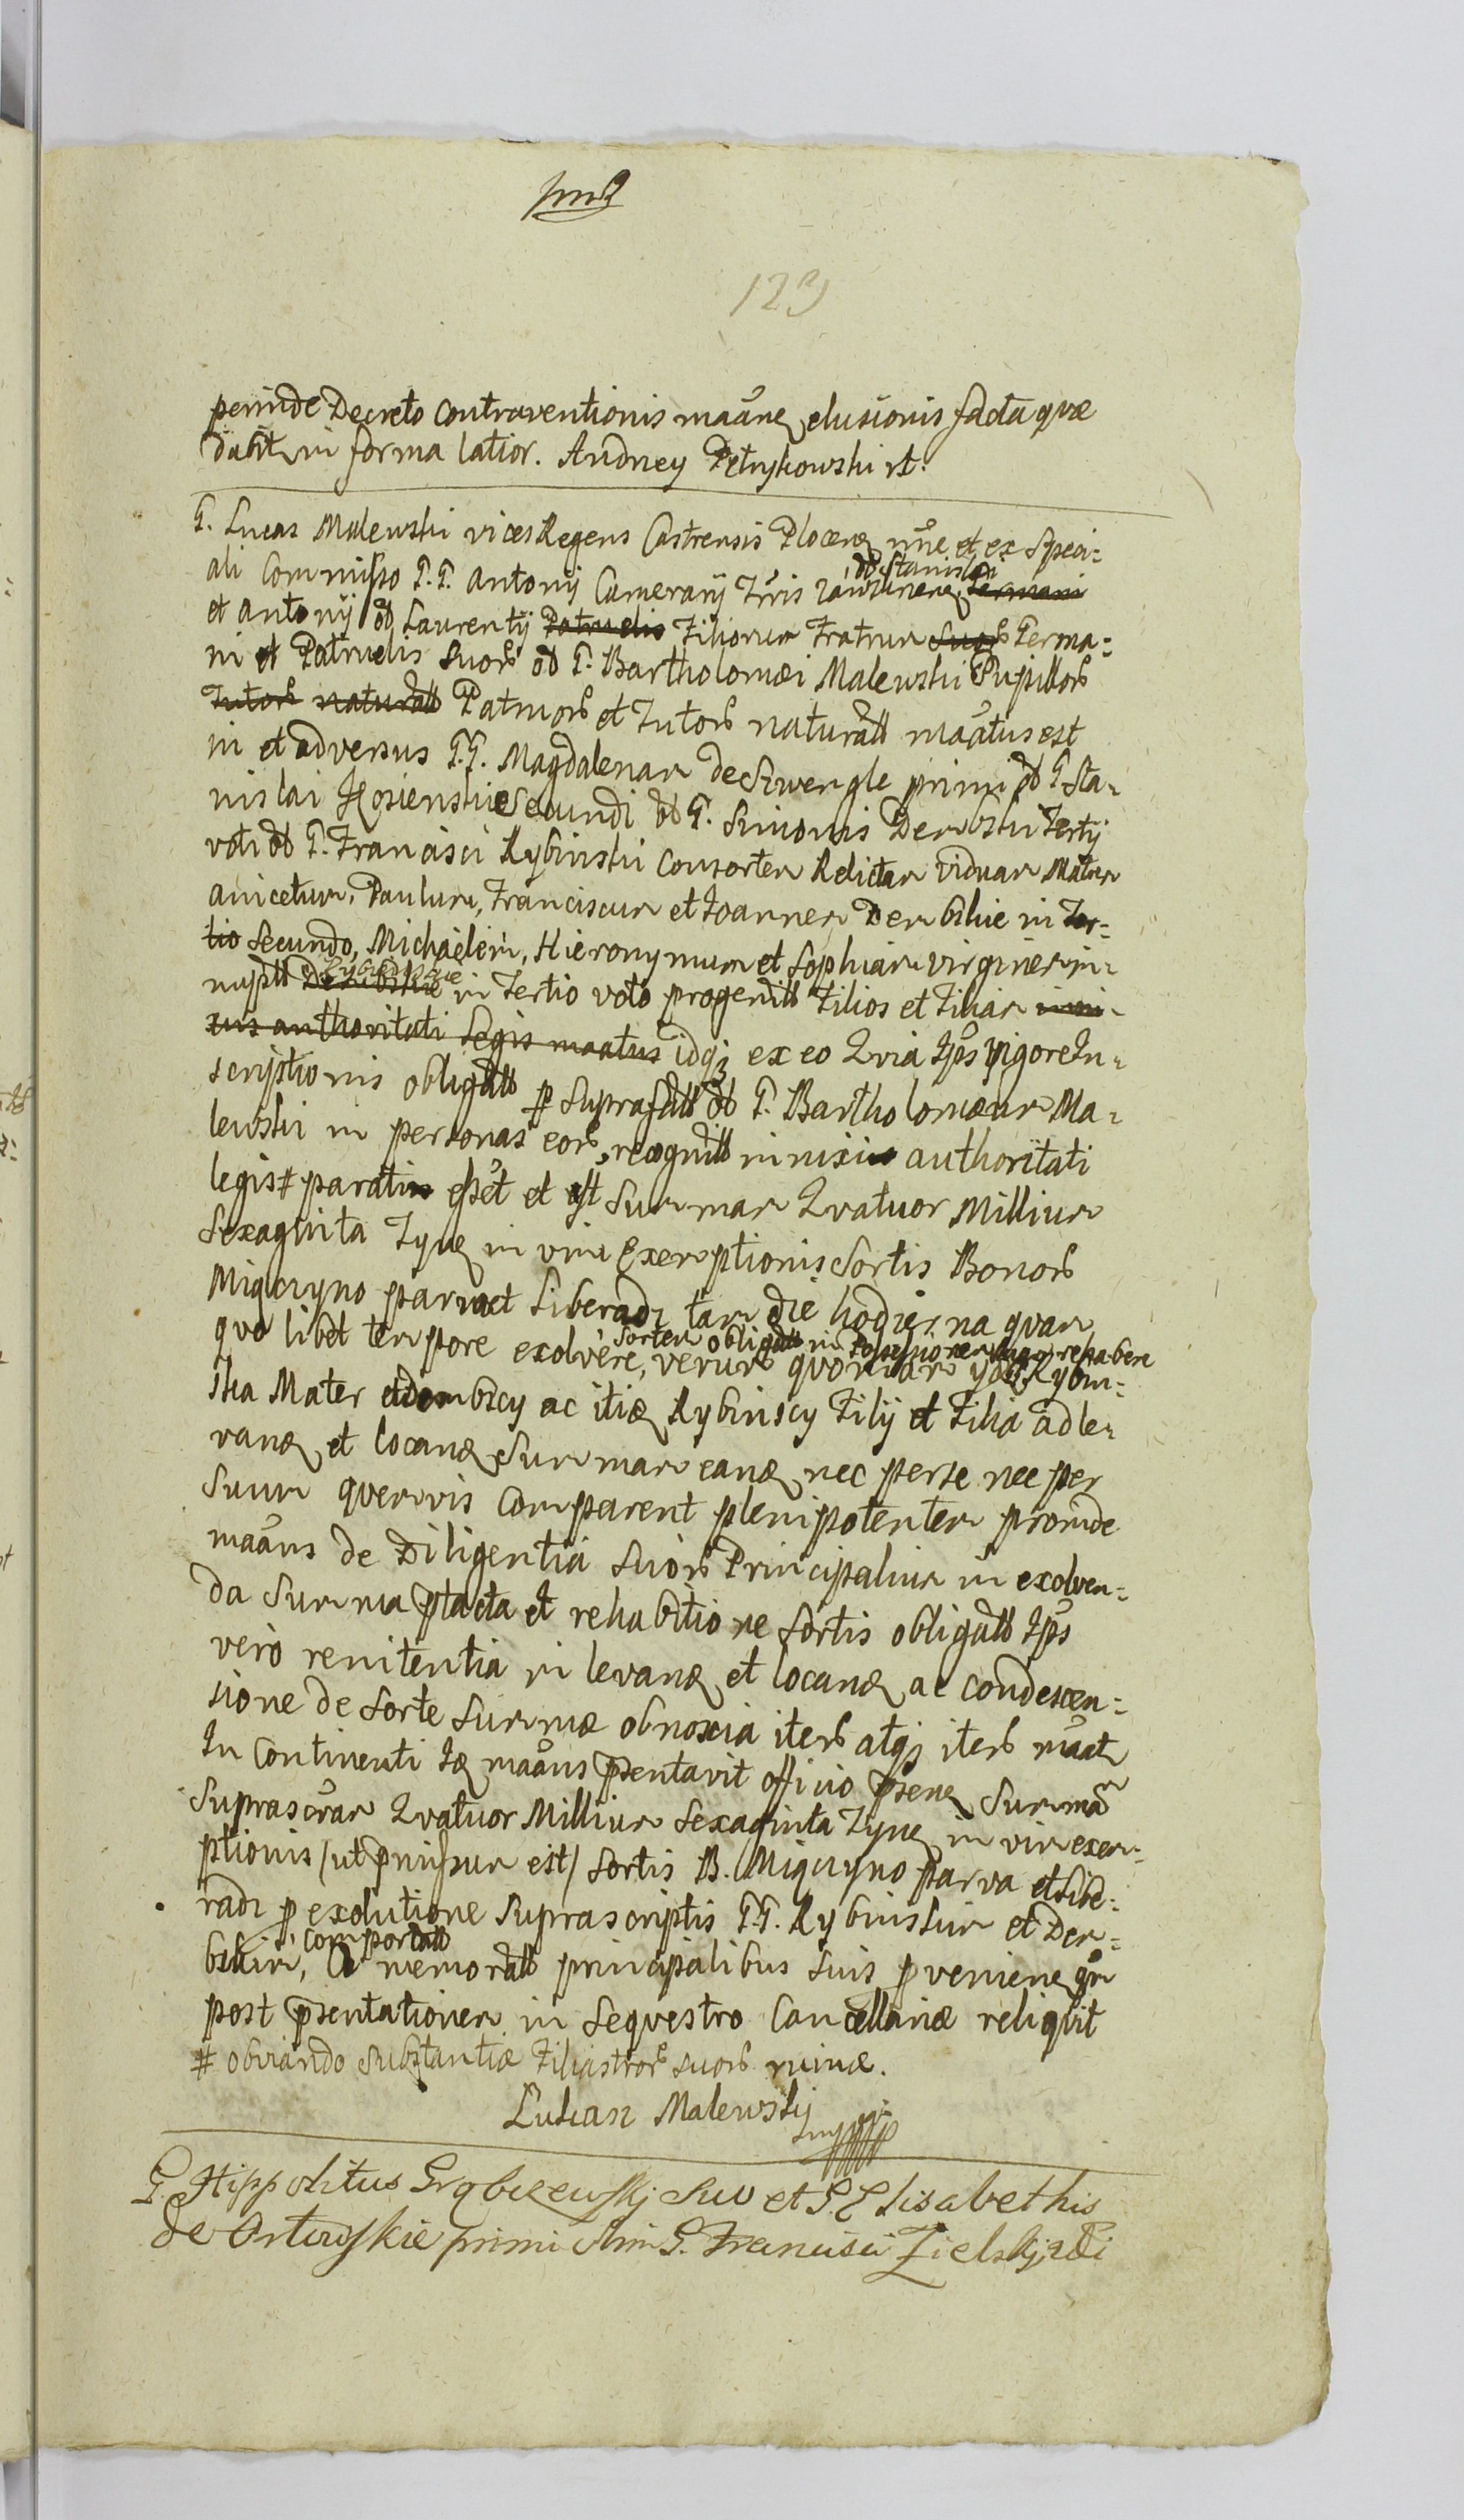 123
perinde Decreto Contraventionis maãne elusionis facta quæ
dabit in forma latior. Andrzey Petrykowski
G. Lucas Malewski vices Regens Castrensis Plocen nne et ex Speci=
ali Commisso G.G. Antonij Camerarij Tris Zawkrnen olb Stanislai Germani
et Antonij olb Laurentij Patruelis Filiorum Fratrum Suor Germa=
ni et Patruelis Suor olb G. Bartholomæi Malewski Pupillor
Tutor naturall Patruor et Tutor naturall maãtus est
in et adversus G.G. Magdalenam de Szwengle primi olb G. Sta=
nislai Kosienskie Secundi olb G. Simonis Dembski Tertij
voti olb G. Francisci Rybinski Consortem Relictam viduam Matrem
Anicetum, Paulum, Franciscum et Joannem Dembskie in Ter=
tio Secundo, Michaelem, Hieronymum et Sophiam virginem in=
nuptt Dembskie Rybinskie in Tertio voto progenitt Filios et Filiam inni=
xus authoritati Legis maatus idq; ex eo Quia Ips vigore In=
scriptionis obligatt p Suprafatt olb G. Bartholomæum Ma=
lewski in personas eor recognitt innixis authoritati
legis # paratis esset et est Summam Quatuor Millium
Sexaginta Tyn in vim Exemptionis Sortis Bonor
Miqczyno parva et Liberadz tam die hodierna quam
quo libet tempore exolvere, Sortem obligatt in Possessionem suam rehabere
verum quoniam ydt Rybin=
ska Mater et Dembscy ac itiæ Rybinscy Filij et Filia ad le=
van et locan Summam ean nec per se nec per
Suum quemvis Comparent plenipotentem proinde
maãns de Diligentia Suor Principalium in exolven=
da Summa ptacta et rehabitione Sortis obligatt Ips
vero renitentia in levan et locan ac condescen=
sione de Sorte Summæ obnoxia iter atq; iter maãt
In Continenti Id maãns psentavit officio psen Summã
Suprascrãm Quatuor Millium Sexaginta Tyn in vim exem=
ptionis /ut pmissum est/ Sortis B. Miqczyno parva et Libe=
radz p exolutione Suprascriptis G.G. Rybinskim et Dem=
bskim, Comportatt a memoratt principalibus Suis pvenien qm
post psentationem in Sequestro Cancellariæ reliquit
# obviando Substantiæ Filiastror suor ruinæ.
Łukasz Malewsky
G. Hippolitus Grąbczewskj Suo et G. Elisabethis
de Orłowskie primi olim G. Francisci Zielskj 2di